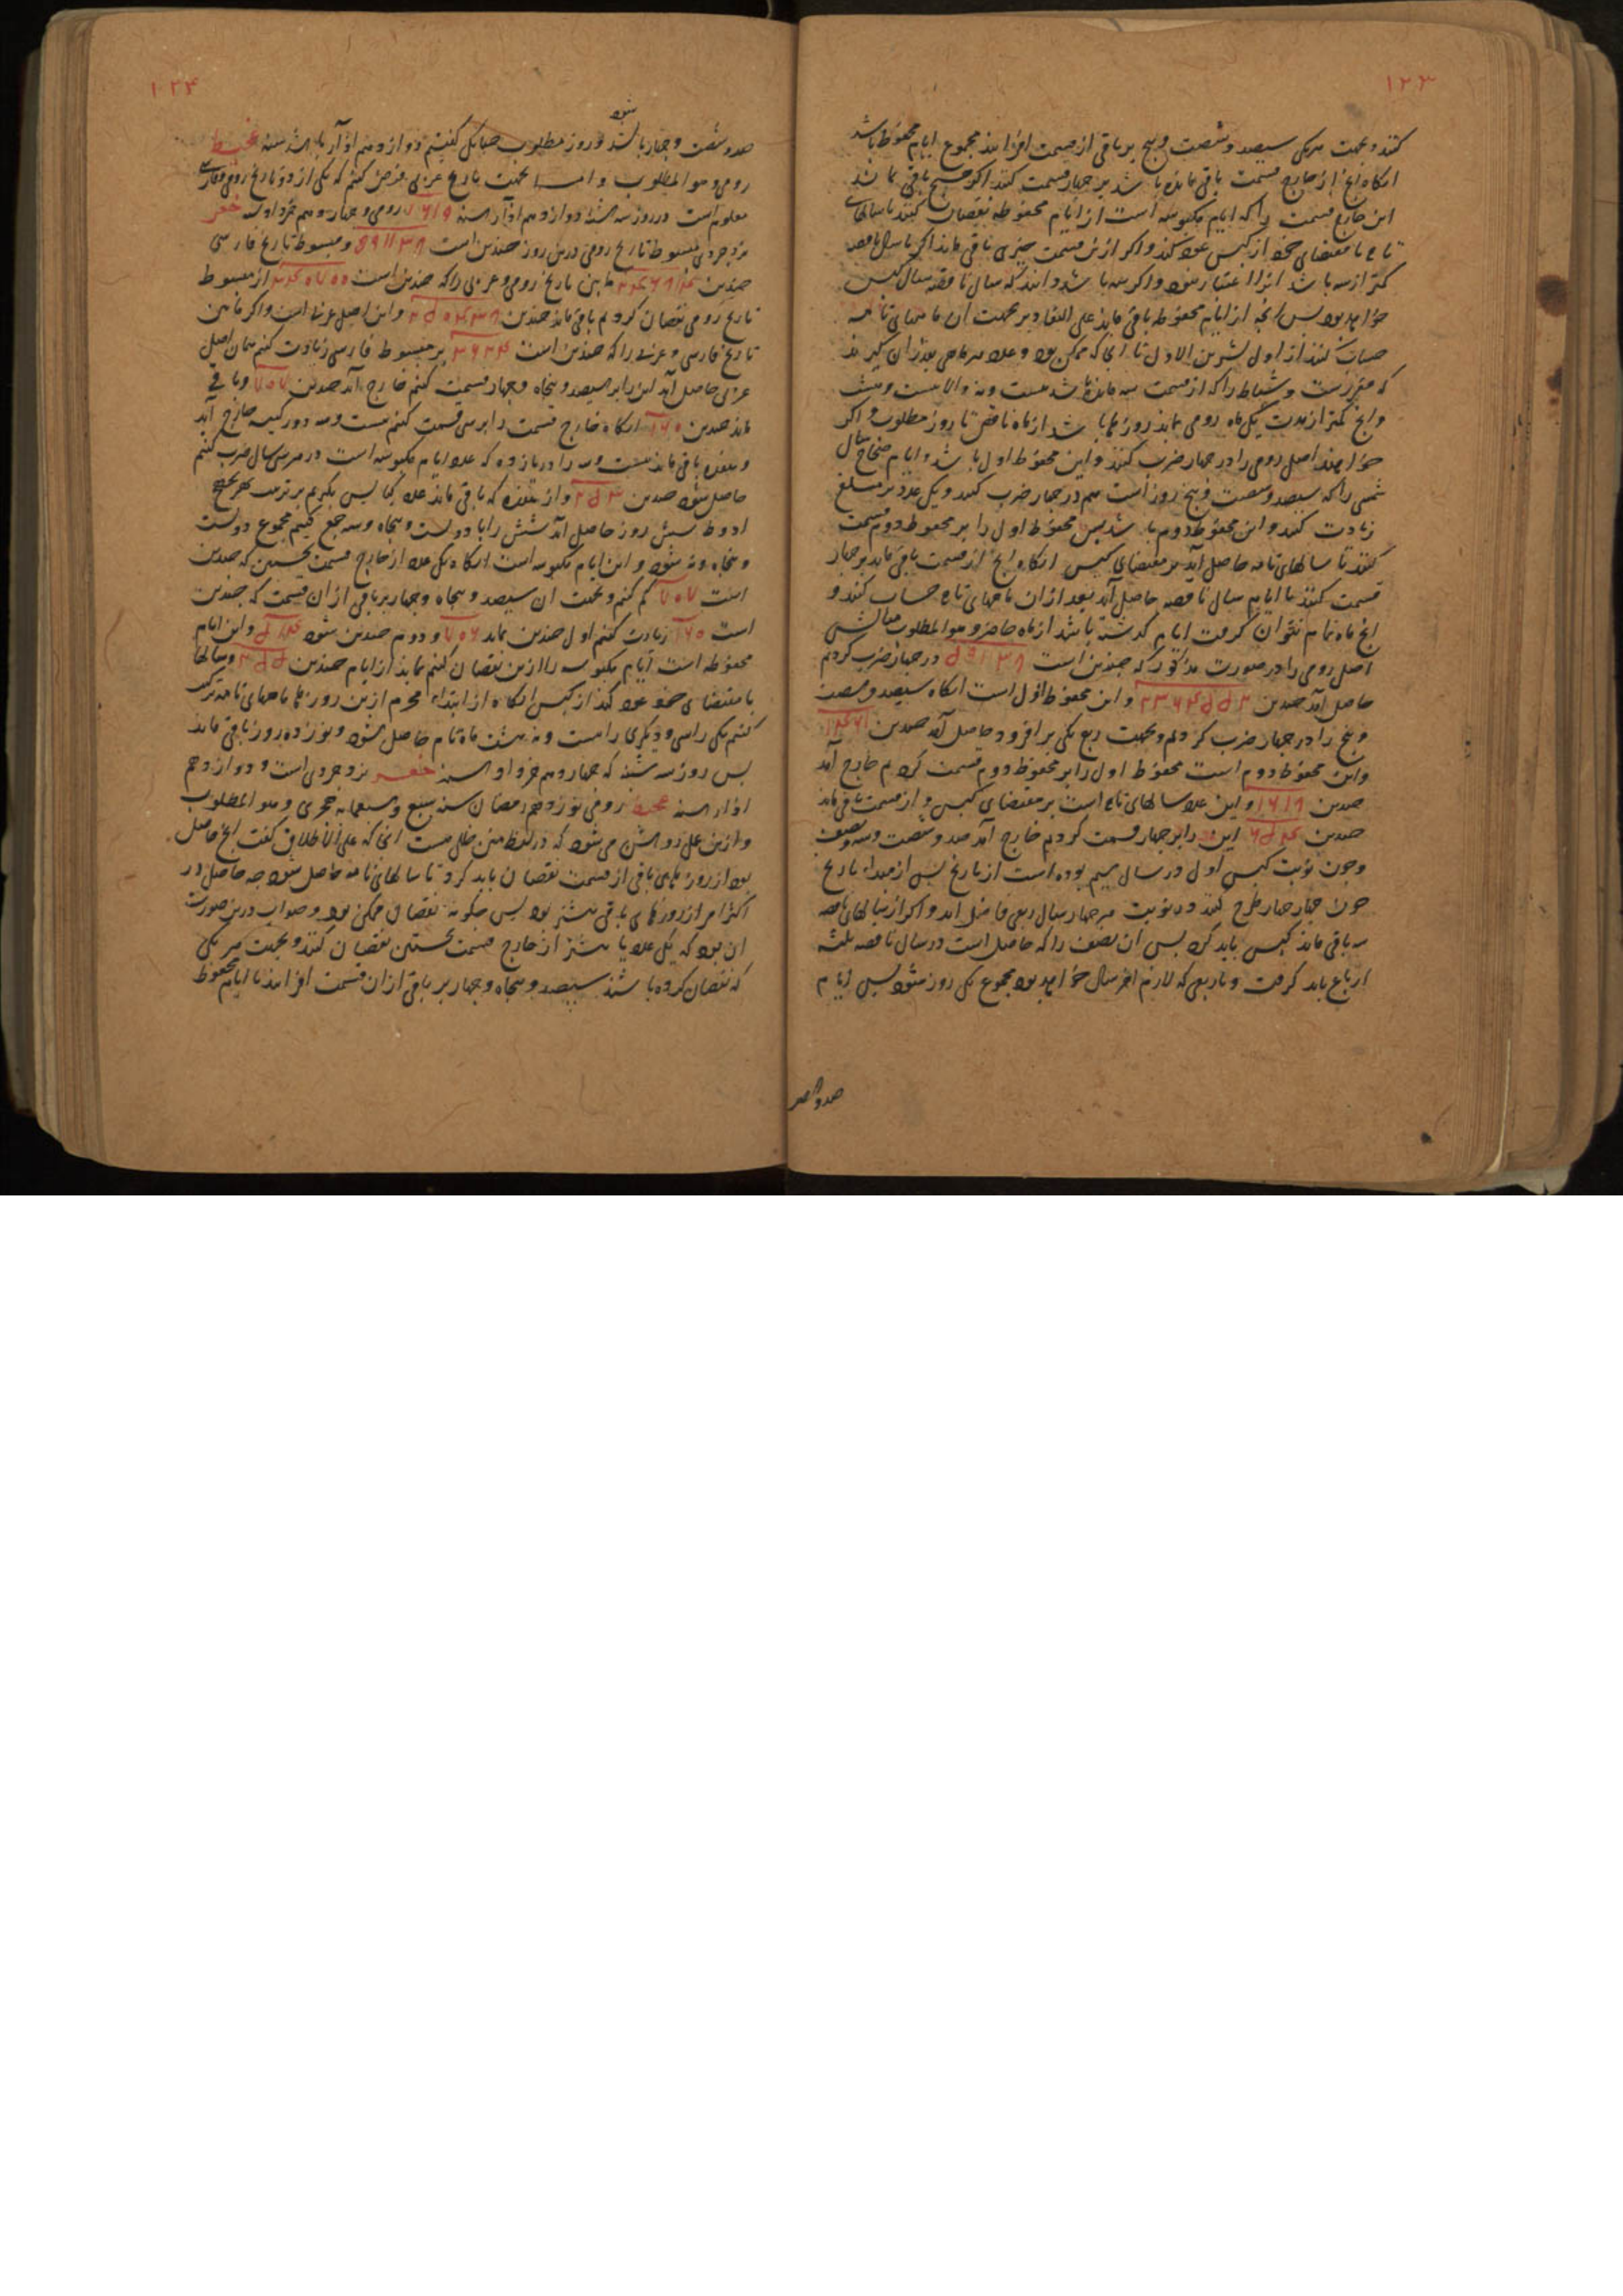 ۱۲۳
کنند و بجهت هر یکی سیصد و شصت و پنج بر باقی از قسمت افزایند مجموع ایام محفوظه باشد
انکاه انج از خارج قسمت باقی مانده باشد بر چهار قسمت کنند اکر هیچ باقی نماند
این خارج قسمت را که ایام مکبوسه است از ایام محفوظه نقصان کنند تا سالهای
تامه با مقتضای خود از کبس عود کند و اکر ازین قسمت چیزی باقی ماند اکر با سال ناقصه
کمتر از سه باشد انرا اعتبار نبود و اکر سه باشد دانند که سال ناقصه سال کبس
خواهد بود پس انچه از ایام محفوظه باقی ماند علی التقادیر بجهت ان ماههای تامه
حساب کنند از اول تشرین الاول تا انجا که ممکن بود و عدد هر ماهی بدان کیرند
که مقررست و شباط را که از قسمت سه مانده باشد بیست و نه و الا بیست و هشت
و انج کمتر از مدت یکماه رومی بماند روزها باشد از ماه ناقص تا روز مطلوب و اکر
خواهند اصل رومی را در چهار ضرب کنند و این محفوظ اول باشد و ایام صحاح سال
شمسی را که سیصد و شصت و پنج روز است هم در چهار ضرب کنند و یک عدد بر مبلغ
زیادت کنند و این محفوظ دوم باشد پس محفوظ اول را بر محفوظ دوم قسمت
کنند تا سالهای تامه حاصل آید بر مقتضای کبس انکاه انج از قسمت باقی ماند بر چهار
قسمت کنند تا ایام سال ناقصه حاصل آید بعد از ان ماههای تامه حساب کنند و
انج ماه تمام نتوان کرفت ایام کذشته باشد از ماه حاضر و هو المطلوب مثالش
اصل رومی را در صورت مذکور که چنین است ۵۹۱۱۳۸ در چهار ضرب کردم
حاصل آمد چنین ۲۳۶۴۵۵۲ و این محفوظ اول است انکاه سیصد و شصت
و پنج را در چهار ضرب کردم و بجهت ربع یکی بر افزودم حاصل آمد چنین ۱۴۶۱
و این محفوظ دوم است محفوظ اول را بر محفوظ دوم قسمت کردم خارج آمد
چنین ۱۶۱۸ و این عدد سالهای تامه است بر مقتضای کبس و از قسمت باقی ماند
چنین ۶۵۴ این را بر چهار قسمت کردم خارج آمد صد و شصت و سه و نصف
و چون نوبت کبس اول در سال سیم بوده است از تاریخ پس از مبداء تاریخ
چون چهار چهار طرح کنند در نوبت هر چهار سال ربعی فاضل اید و اکر از سالهای تامه
سه باقی ماند کبس باید کرد پس ان نصف را که حاصل است در سال ناقصه ثلثه
ارباع باید کرفت و با ربعی که لازم اخر سال خواهد بود مجموع یک روز شود پس ایام
صد و شصت
۱۲۴
شود
صد و شصت و چهار باشد و روز مطلوب چنانک کفتیم دوازدهم اذار باشد سنه غخیط
رومی و هو المطلوب و اما بجهت تاریخ عربی فرض کنم که یکی از دو تاریخ رومی و فارسی
معلوم است در روز سه شنبه دوازدهم اذار سنه ۱۶۱۹ رومی و چهاردهم خرداد سنه خعر
یزدجردی مبسوط تاریخ رومی درین روز چنین است ۵۹۱۱۳۸ و مبسوط تاریخ فارسی
چنین ۲۴۶۸۱۴ مابین تاریخ رومی و عربی را که چنین است ۳۴۰۷۰۰ از مبسوط
تاریخ رومی نقصان کردم باقی ماند چنین ۲۵۰۴۳۸ و این اصل عربی است و اکر مابین
تاریخ فارسی و عربی را که چنین است ۳۶۲۴ بر مبسوط فارسی زیادت کنم همان اصل
عربی حاصل آید این را بر سیصد و پنجاه و چهار قسمت کنم خارج آمد چنین ۷۰۷ و باقی
ماند چنین ۱۶۰ انکاه خارج قسمت را بر سی قسمت کنم بیست و سه دور کبیسه خارج آمد
و هفده باقی ماند بیست و سه را در یازده که عدد ایام مکبوسه است در هر سی سال ضرب کنم
حاصل شود چنین ۲۵۳ و از هفده که باقی ماند عدد کبایس بکیرم بر ترتیب بهزیجح
ادوط شش روز حاصل آمد شش را با دویست و پنجاه و سه جمع کنیم مجموع دویست
و پنجاه و نه شود و این ایام مکبوسه است انکاه یک عدد از خارج قسمت نخستین که چنین
است ۷۰۷ کم کنم و بجهت ان سیصد و پنجاه و چهار بر باقی از ان قسمت که چنین
است ۱۶۰ زیادت کنم اول چنین بماند ۷۰۶ و دوم چنین شود ۵۱۴ و این ایام
محفوظه است ایام مکبوسه را ازین نقصان کنم بماند از ایام چنین ۲۵۵ و سالها
با مقتضای خود عود کند از کبس انکاه از ابتداء محرم ازین روزها ماههای تامه ترکیب
کنم یکی را سی و دیکری را بیست و نه هشت ماه تام حاصل شود و نوزده روز باقی ماند
پس روز سه شنبه که چهاردهم خرداد سنه خعر یزدجردی است و دوازدهم
اذار سنه غخیط رومی نوزدهم رمضان سنه سبع و سبعمایه هجری و هو المطلوب
و ازین عمل روشن می شود که در لفظ متن خللی هست انجا که علی الاطلاق کفت انج حاصل
بود از روزهای باقی از قسمت نقصان باید کرد تا سالهای تامه حاصل شود چه حاصل در
اکثر امر از روزهای باقی بیشتر بود پس چکونه نقصان ممکن بود و صواب درین صورت
ان بود که یک عدد یا بیشتر از خارج قسمت نخستین نقصان کنند و بجهت هر یکی
که نقصان کرده باشند سیصد و پنجاه و چهار بر باقی از ان قسمت افزایند تا ایام محفوظ